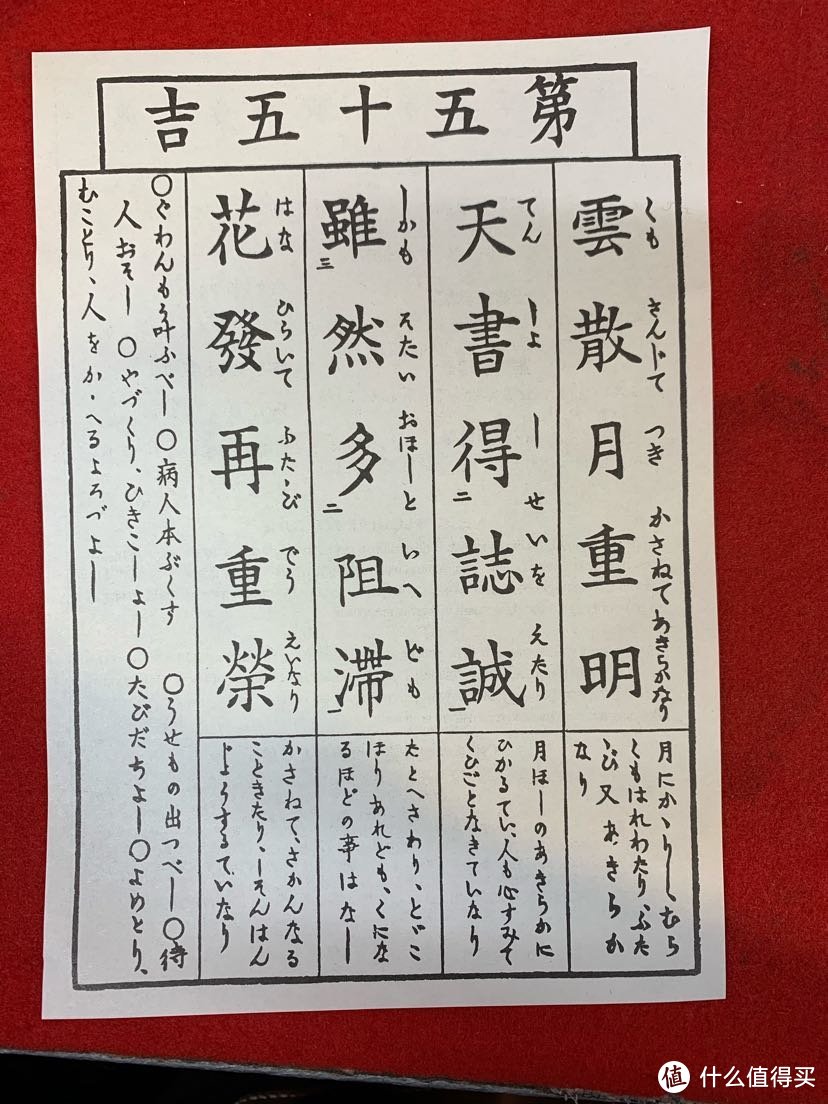 第五十五吉
雲散月重明
くも さんじて つき かさねてあきらかなり
月にかゝりしむら
くもはれわたり、ふた
ゝび又あきらか
なり
天書得誌誠
てん しよ し せいを えたり
二 一
月ほしのあきらかに
ひかるてい、人も心すみて
くひごとなきていなり
雖然多阻滞
しかも そたい おほしと いへ ども
三 二 一
たとへさわり、とゞこ
ほりあれども、くにな
るほどの事はなし
花發再重榮
はな ひらいて ふたゝび てう えいなり
かさねて、さかんなる
こときたり、しそんはん
じようするていなり
〇ぐわんもう叶ふべし〇病人本ぶくす 〇うせもの出つべし〇待
人おそし 〇やづくり、ひきこしよし〇たびだちよし〇よめとり、
むことり、人をかゝへるよろづよし
值 什么值得买